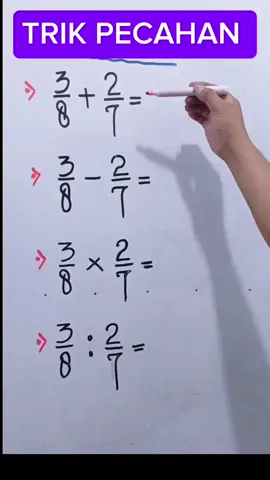 TRIK PECAHAN
3/8 + 2/7 =
3/8 − 2/7 =
3/8 × 2/7 =
3/8 : 2/7 =